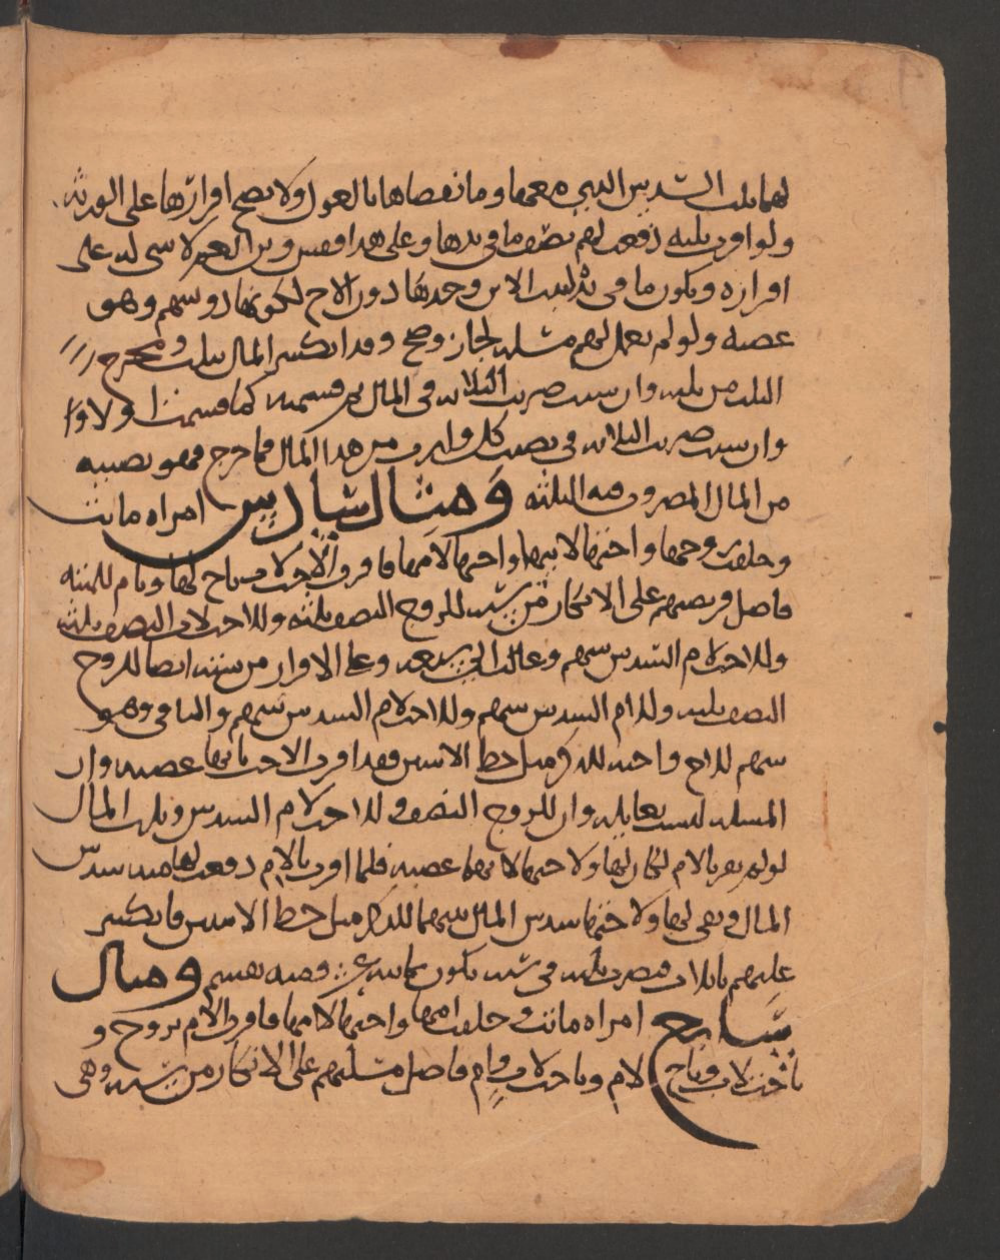 لهما ثلث السدس الذي معهما وما نقصاها بالعول ولا يصح اقرارها على الورثة
ولو اقرت بابنه دفعت لهم نصف ما في يدها وعلى هذا فقس وبن العم لا شي له على
اقراره ويكون ما في يد لبنت الابن وحدها دون الاخ لكونها ذو سهم وهو
عصبه ولو لم تعمل لهم مسله لجاز وصح وقد انكسر المال بثلث ومخرج
الثلث من ثلثه وان شيت ضربت الثلاثه في المال ثم قسمته كما قسمت اولا
وان شيت ضربت الثلاثه في نصيب كل وارث من هذا المال فما خرج فهو نصيبه
من المال المضروب فيه الثلثه ومثال سادس امراه ماتت
وخلفت زوجها واختها لابيها واختها لامها فاقرت الاخت لاب باخ لها وبام للميته
فاصل فريضتهم على الانكار من سته للزوج النصف ثلثه وللاخت لاب النصف ثلثه
وللاخت لام السدس سهم وعالت الى سبعه وعلى الاقرار من سته ايضا للزوج
النصف ثلثه وللام السدس سهم وللاخت لام السدس سهم والباقي وهو
سهم للاخ واخته للذكر مثل حظ الانثيين فقد اقرت الاخت بانها عصبه وان
المسله ليست بعايله وان للزوج النصف وللاخت لام السدس وثلث المال
لو لم تقر بالام لكان لها ولاخيها لانهما عصبه فلما اقرت بالام دفعت لها منه سدس
المال وبقي لها ولاخيها سدس المال بينهما للذكر مثل حظ الانثيين فانكسر
عليهم باثلاث فضرب ثلثه في سته يكون ثمانيه عشر فمنه تقسم ومثال
سابع امراه ماتت وخلفت امها واختها لامها فاقرت الام بزوج و
باخت لاب وباخ لام وباخت لاب وام فاصل مسلتهم على الانكار من سته وهي